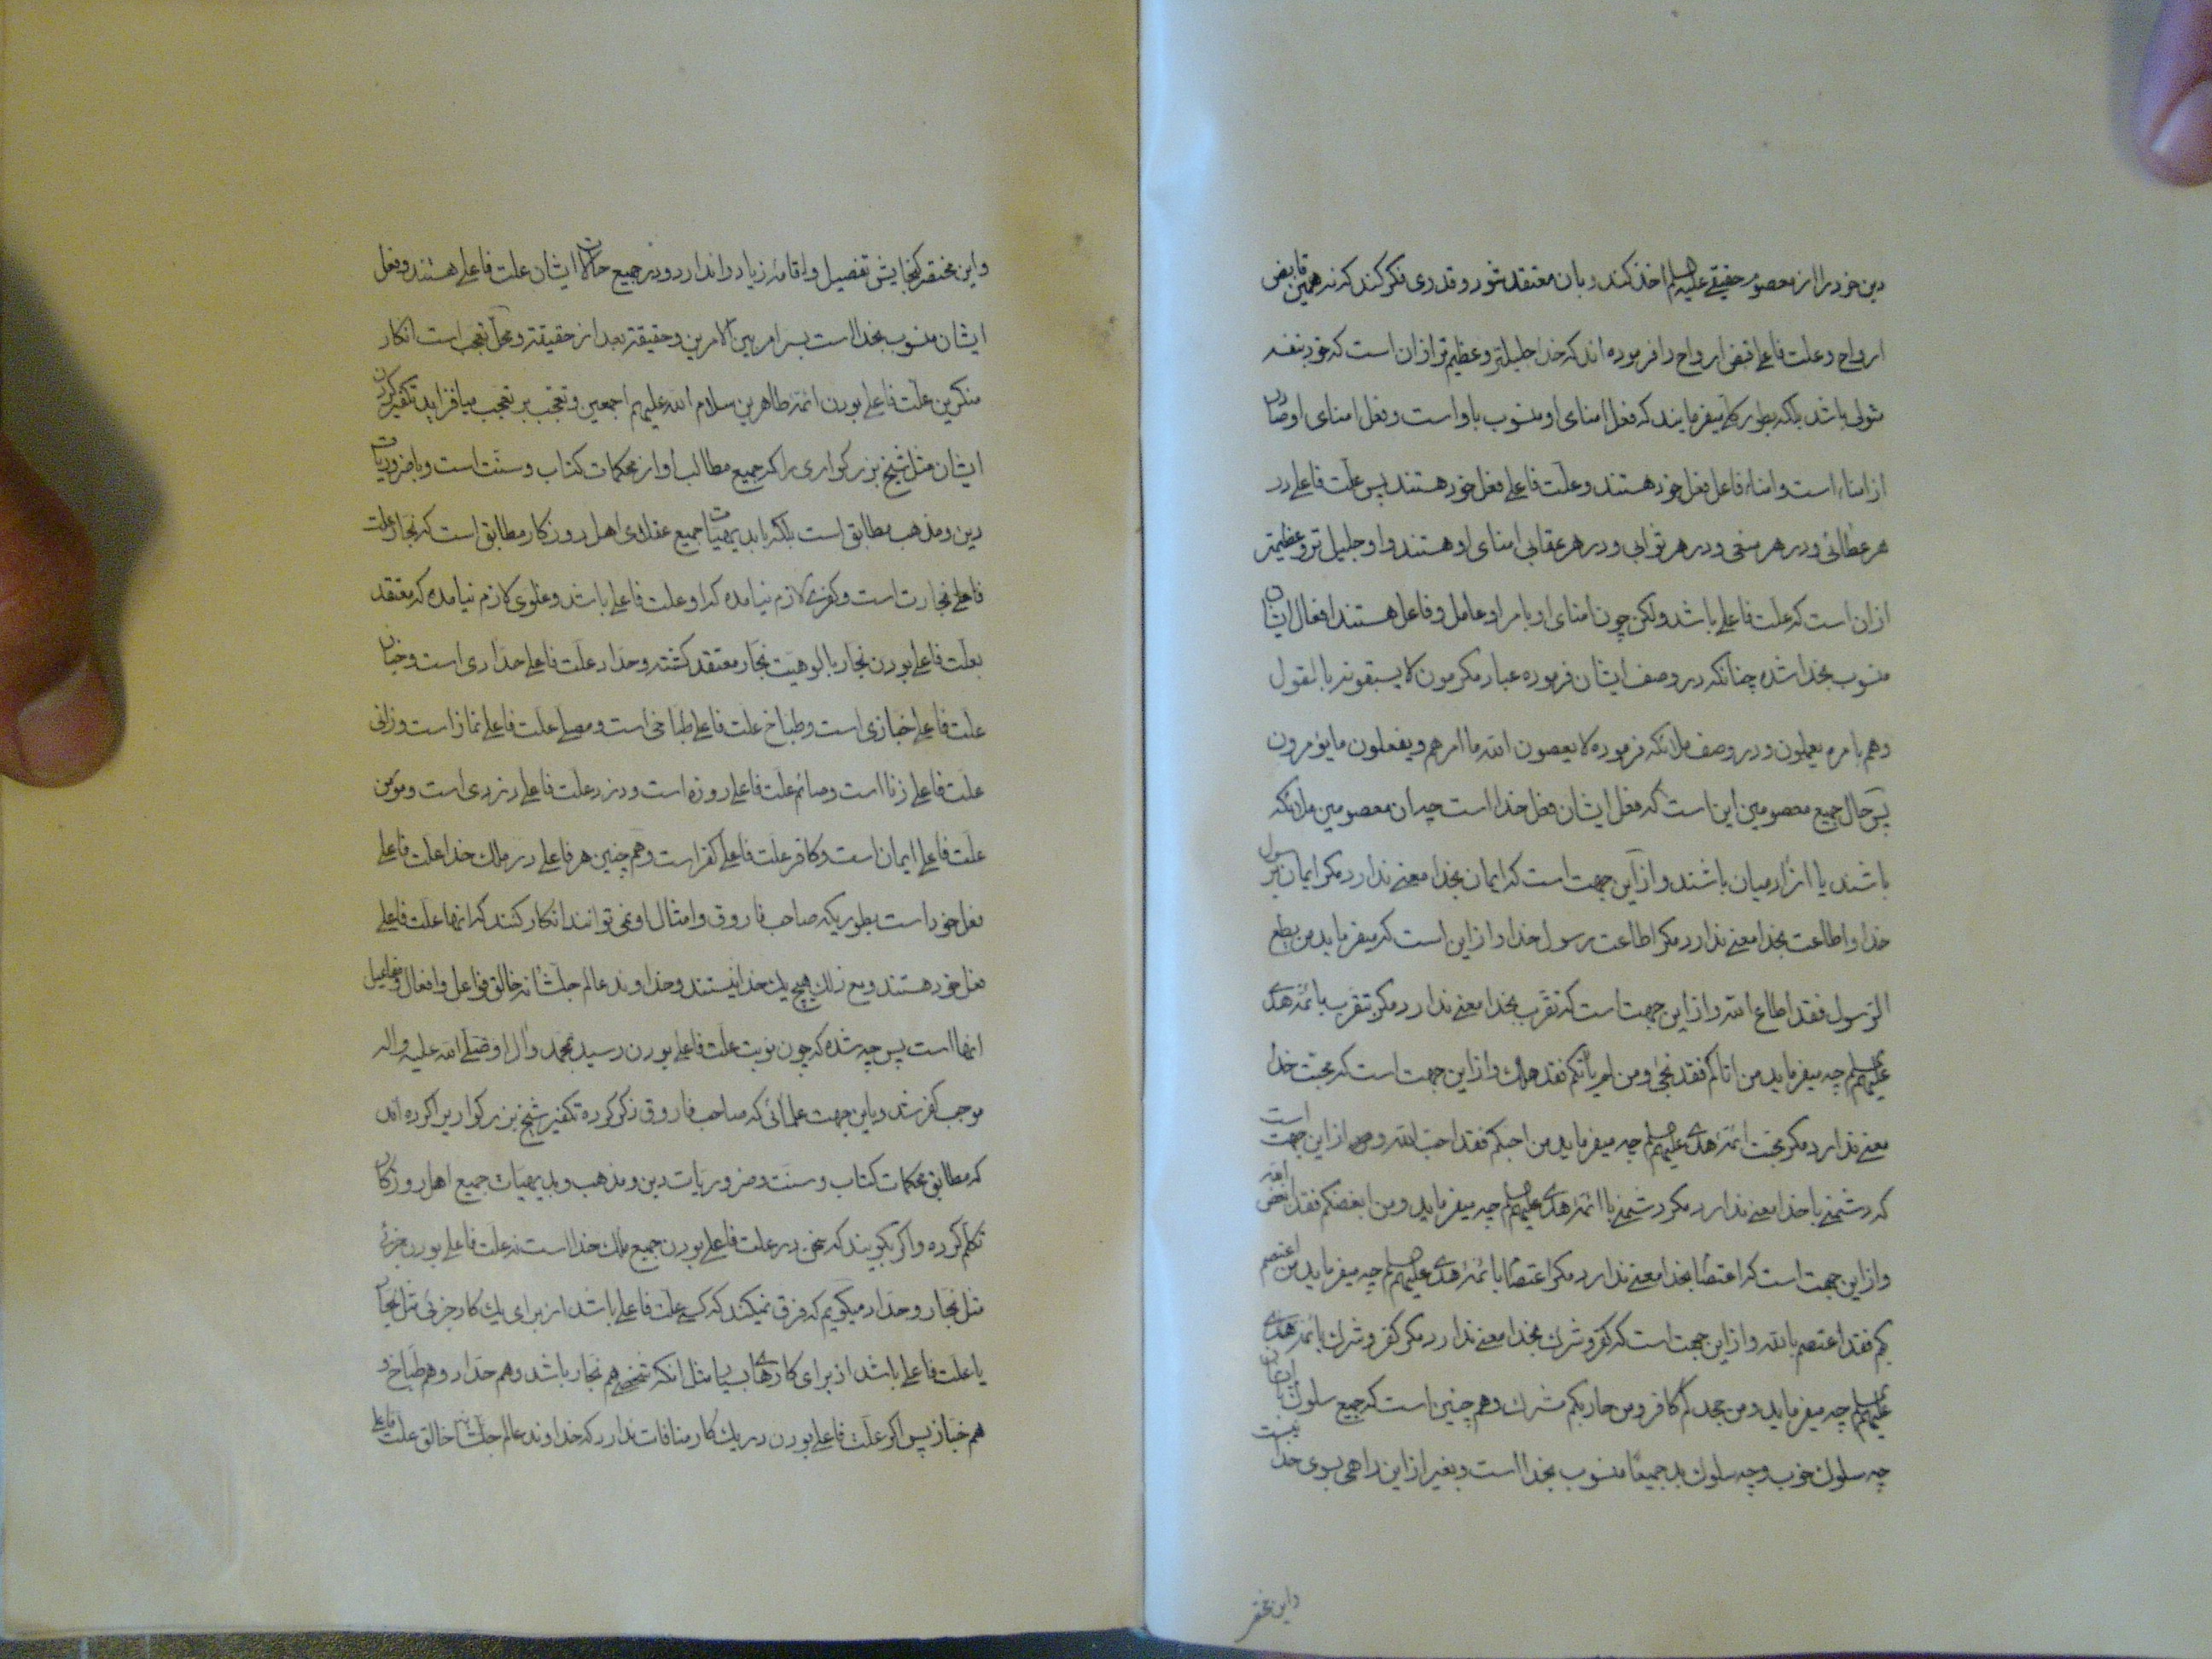 دین خود را از معصوم حقیقی علیه السلم اخذ کند و بان معتقد شود و قدری فکر کند که نه همین قابض
ارواح و علت فاعلی قبض ارواح را فرموده اند که خدا جلیلتر و عظیم تر از ان است که خود بنفسه
متولی باشد بلکه بطور کلی میفرمایند که فعل امنای او منسوب باو است و فعل امنای او صادر
از امناء است و امناء فاعل فعل خود هستند و علت فاعلی فعل خود هستند پس علت فاعلی در
هر عطائی و در هر منعی و در هر ثوابی و در هر عقابی امنای او هستند و او جلیل تر و عظیمتر
از ان است که علت فاعلی باشد ولکن چون امنای او بامر او عامل و فاعل هستند افعال ایشان
منسوب بخدا شده چنانکه در وصف ایشان فرموده عباد مکرمون لا یسبقونه بالقول
و هم بامره یعملون و در وصف ملائکه فرموده لا یعصون الله ما امرهم و یفعلون ما یؤمرون
پس حال جمیع معصومین این است که فعل ایشان فعل خدا است چه ان معصومین ملائکه
باشند یا از ادمیان باشند و از این جهت است که ایمان بخدا معنی ندارد مگر ایمان برسول
خدا و اطاعت بخدا معنی ندارد مگر اطاعت رسول خدا و از این است که میفرماید من یطع
الرسول فقد اطاع الله و از این جهت است که تقرب بخدا معنی ندارد مگر تقرب بائمه هدی
علیهم السلم چه میفرماید من اتاکم فقد نجی و من لم یأتکم فقد هلک و از این جهت است که محبت خدا
معنی ندارد مگر محبت ائمه هدی علیهم السلم چه میفرماید من احبکم فقد احب الله و از این جهت است
که دشمنی با خدا معنی ندارد مگر دشمنی با ائمه هدی علیهم السلم چه میفرماید و من ابغضکم فقد ابغض الله
و از این جهت است که اعتصام بخدا معنی ندارد مگر اعتصام بائمه هدی علیهم السلم چه میفرماید من اعتصم
بکم فقد اعتصم بالله و از این جهت است که کفر و شرک بخدا معنی ندارد مگر کفر و شرک بائمه هدی
علیهم السلم چه میفرماید و من جحدکم کافر و من حاربکم مشرک و هم چنین است که جمیع سلوک با ایشان
چه سلوک خوب و چه سلوک بد جمیعا منسوب بخدا است و بغیر از این راهی بسوی خدا نیست
و این مختصر
و این مختصر گنجایش تفصیل و اقامهٔ زیاد را ندارد و در جمیع حالات ایشان علت فاعلی هستند و فعل
ایشان منسوب بخدا است بسر امر بین الامرین و حقیقة بعد از حقیقة و محل تعجب است انکار
منکرین علت فاعلی بودن ائمه طاهرین سلام الله علیهم اجمعین و تعجب بر تعجب میافزاید تکفیر کردن
ایشان مثل شیخ بزرگواری را که جمیع مطالب او از محکمات کتاب و سنت است و با ضروریات
دین و مذهب مطابق است بلکه با بدیهیات جمیع عقلای اهل روزگار مطابق است که نجار علت
فاعلی نجارت است و کفری لازم نیامده که او علت فاعلی باشد و غلوی لازم نیامده که معتقد
بعلت فاعلی بودن نجار بالوهیت نجار معتقد گشته و حداد علت فاعلی حدادی است و خباز
علت فاعلی خبازی است و طباخ علت فاعلی طباخی است و مصلی علت فاعلی نماز است و زانی
علت فاعلی زنا است و صائم علت فاعلی روزه است و دزد علت فاعلی دزدی است و مؤمن
علت فاعلی ایمان است و کافر علت فاعلی کفر است و هم چنین هر فاعلی در ملک خدا علت فاعلی
فعل خود است بطوریکه صاحب فاروق و امثال او نمی توانند انکار کنند که انها علت فاعلی
فعل خود هستند و مع ذلک هیچ یک خدا نیستند و خداوند عالم جلشانه خالق فواعل و افعال و مفاعیل
انها است پس چه شده که چون نوبت علت فاعلی بودن رسید بمحمد و ال او صلی الله علیه و اله
موجب کفر شد و باین جهت علمائی که صاحب فاروق ذکر کرده تکفیر شیخ بزرگوار را کرده اند
که مطابق محکمات کتاب و سنت و ضروریات دین و مذهب و بدیهیات جمیع اهل روزگار
تکلم کرده و اگر بگویند که سخن در علت فاعلی بودن جمیع ملک خدا است نه علت فاعلی بودن جزئی
مثل نجار و حداد میگویم که فرق نمیکند که کسی علت فاعلی باشد از برای یک کار جزئی مثل نجار
یا علت فاعلی باشد از برای کارهای بسیار مثل انکه شخصی هم نجار باشد و هم حداد و هم طباخ و
هم خباز پس اگر علت فاعلی بودن در یک کار منافات ندارد که خداوند عالم جلشانه خالق علت فاعلی